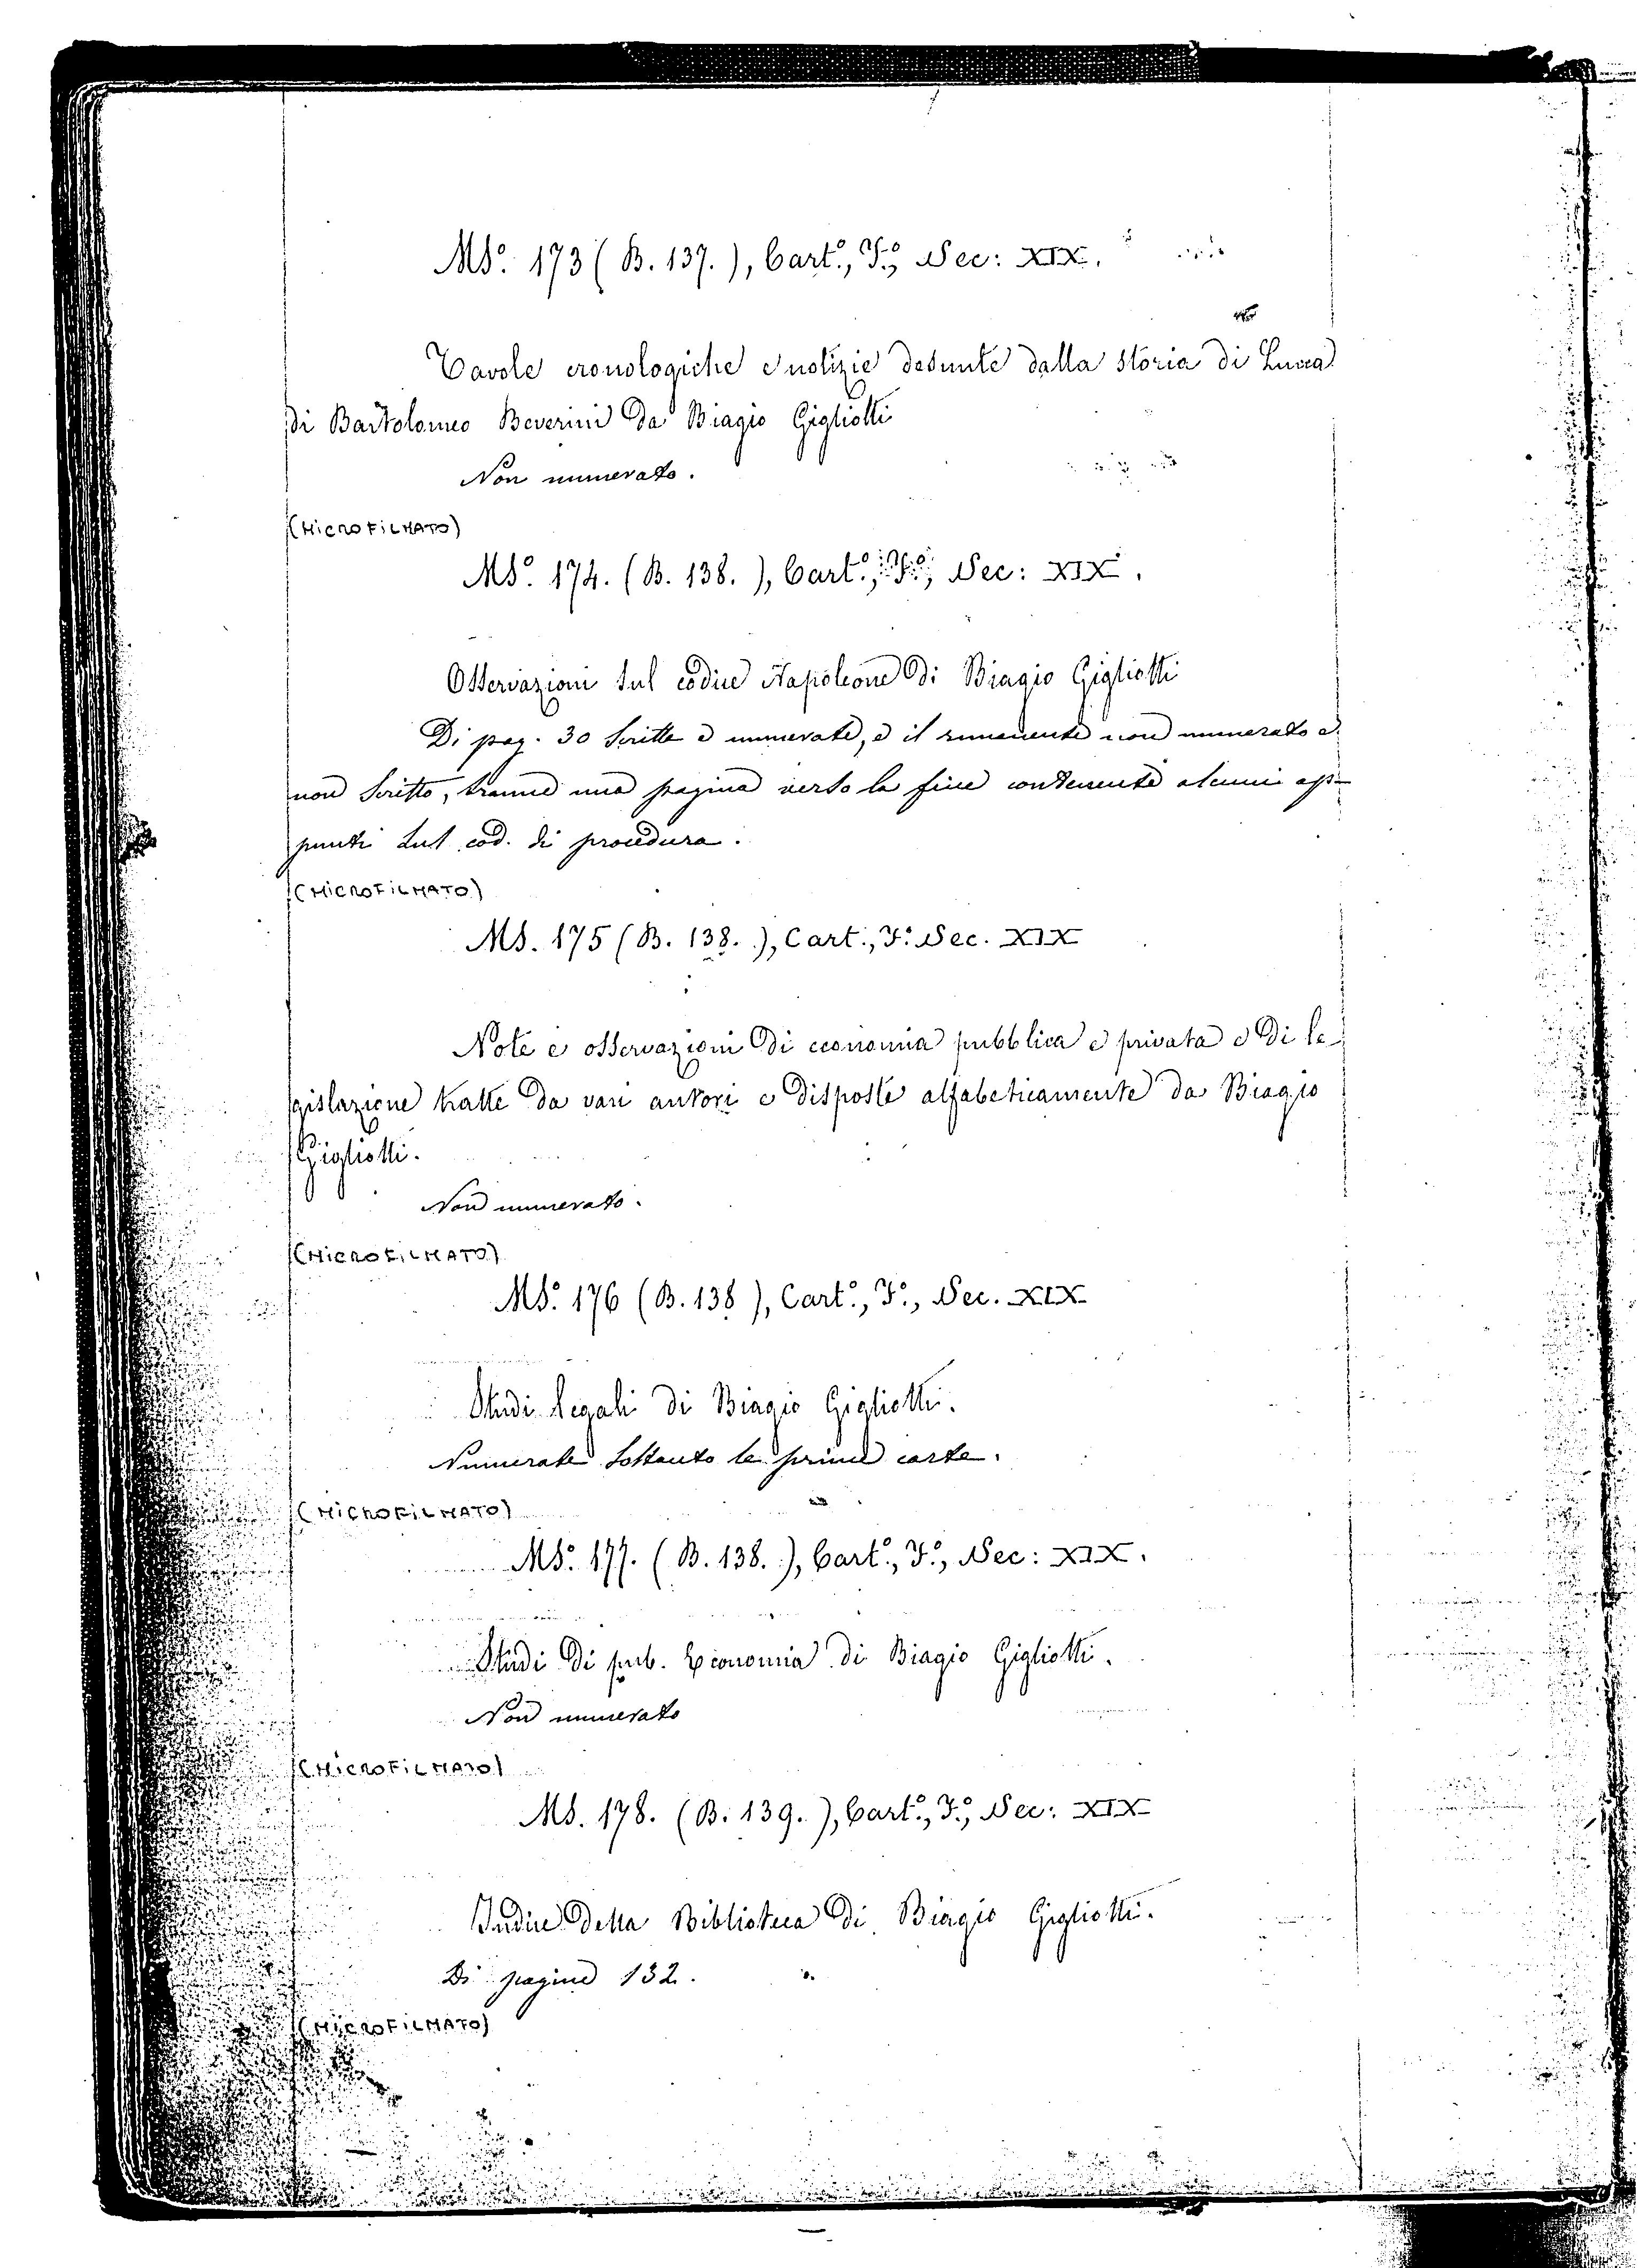 Ms.º 173 (B. 137.), Cart.º, F.º, Sec: XIX.
Tavole cronologiche e notizie desunte dalla storia di Lucca
di Bartolomeo Beverini da Biagio Gigliotti
Non numerato.
(MICROFILMATO)
Ms.º 174. (B. 138.), Cart.º, F.º, Sec: XIX.
Osservazioni sul codice Napoleone di Biagio Gigliotti
Di pag. 30 scritte e numerate, e il rimanente non numerato e
non scritto, tranne una pagina verso la fine contenente alcuni ap-
punti sul cod. di procedura.
(MICROFILMATO)
Ms. 175 (B. 138.), Cart., F.º Sec. XIX
Note e osservazioni di economia pubblica e privata e di le-
gislazione tratte da vari autori e disposte alfabeticamente da Biagio
Gigliotti.
Non numerato.
(MICROFILMATO)
Ms.º 176 (B. 138), Cart.º, F.º, Sec. XIX
Studi legali di Biagio Gigliotti.
Numerate soltanto le prime carte.
(MICROFILMATO)
Ms.º 177. (B. 138.), Cart.º, F.º, Sec: XIX.
Studi di pub. Economia di Biagio Gigliotti.
Non numerato
(MICROFILMATO)
Ms. 178. (B. 139.), Cart.º, F.º, Sec: XIX
Indice della Biblioteca di Biagio Gigliotti.
Di pagine 132.
(MICROFILMATO)